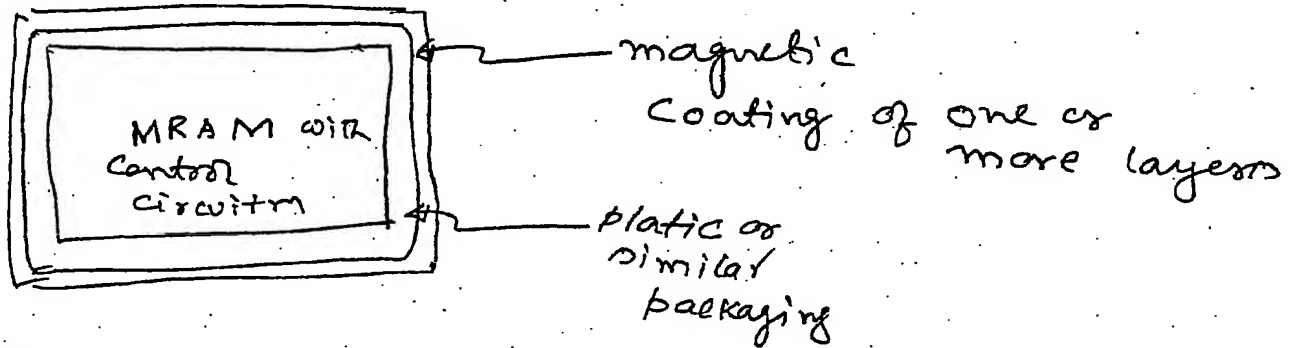 MRAM with
Control
circuitry
magnetic
Coating of one or
more layers
platic or
similar
packaging